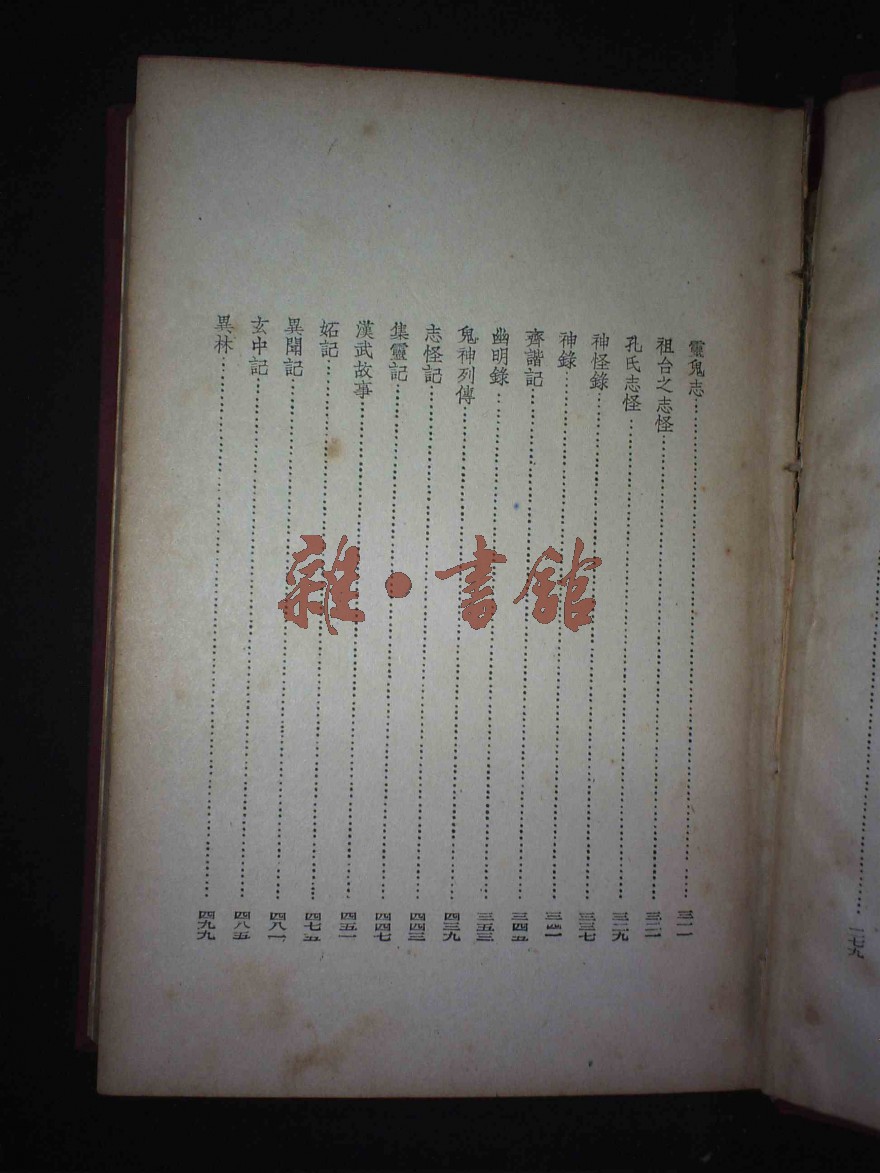 一七九
靈鬼志 三一一
祖台之志怪 三二一
孔氏志怪 三二九
神怪錄 三三七
神錄 三四一
齊諧記 三四五
幽明錄 三五三
鬼神列傳 四三九
志怪記 四四三
集靈記 四四七
漢武故事 四五一
妬記 四七五
異聞記 四八一
玄中記 四八五
異林 四九九
雜·書館